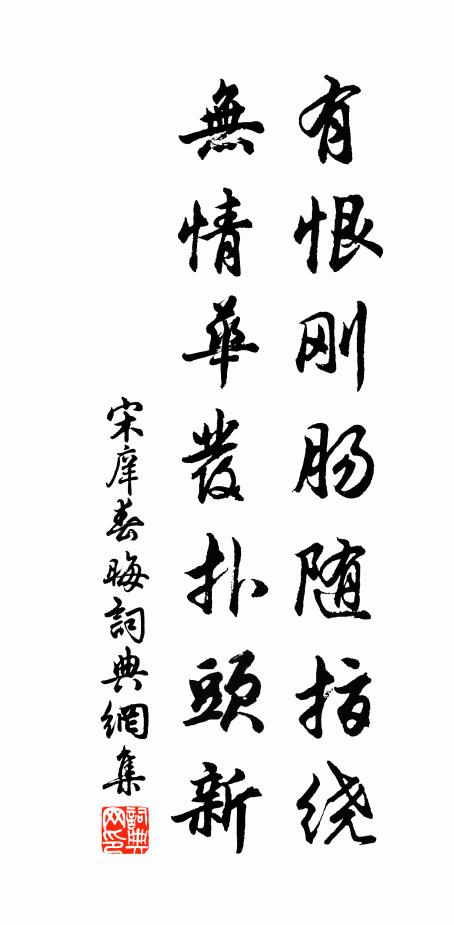 有恨刚肠随指绕
無情華發扑頭新
宋庠春晦詞典網集
詞典网印